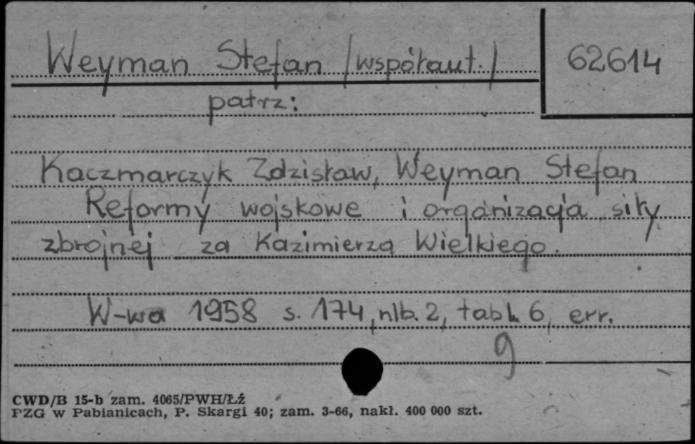 Weyman Stefan /współaut./
62614
patrz:
Kaczmarczyk Zdzisław, Weyman Stefan
Reformy wojskowe i organizacja siły
zbrojnej za Kazimierza Wielkiego.
W-wa 1958 s. 174, nlb. 2, tabl. 6, err.
g
CWD/B 15-b zam. 4065/PWH/Łź
PZG w Pabianicach, P. Skargi 40; zam. 3-66, nakł. 400 000 szt.